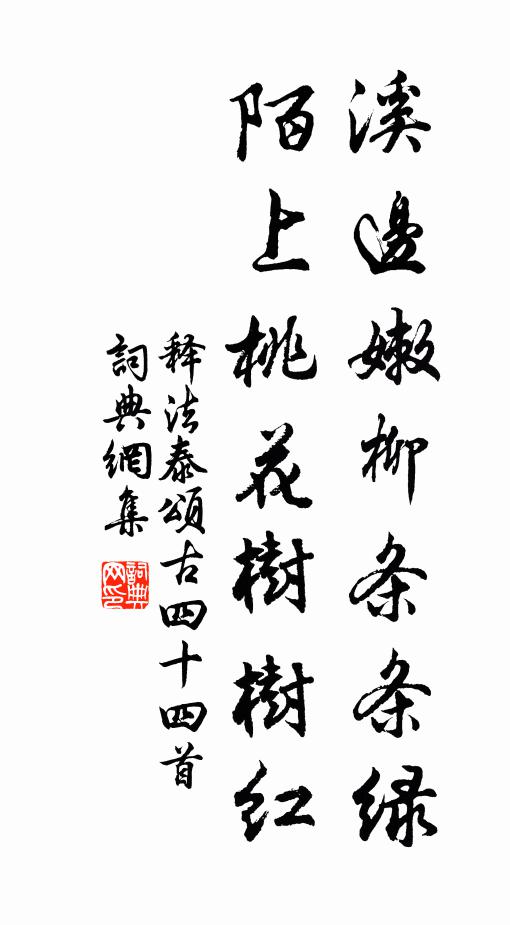 溪邊嫩柳条条緑
陌上桃花樹樹红
释法泰頌古四十四首
詞典網集
詞典网印